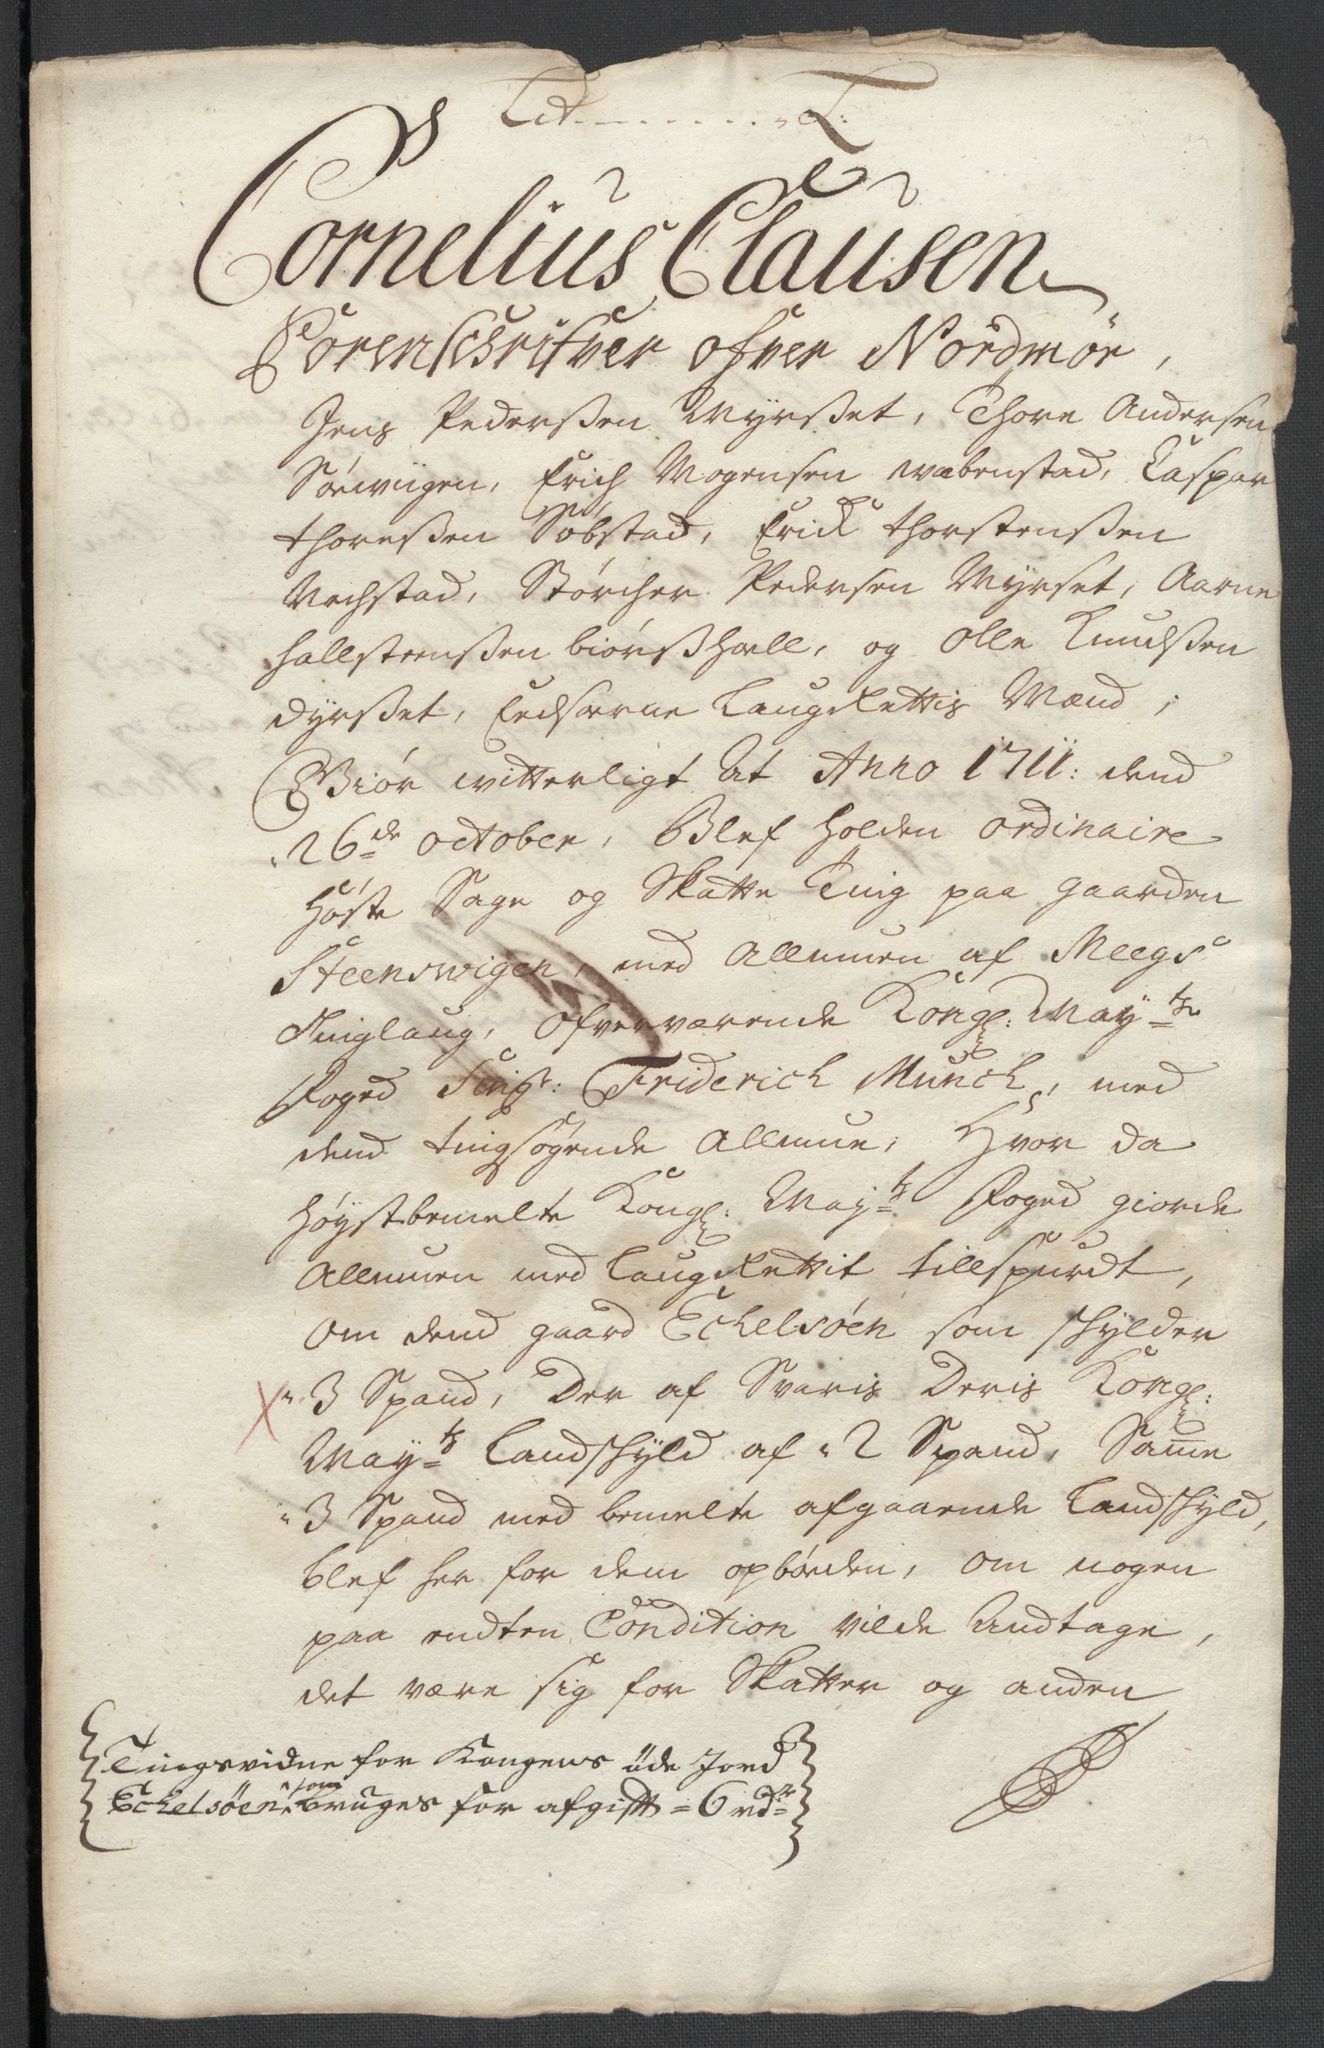 Lit. L:
Cornelius Clausen
Sorenschrifver ofver Nordmør,
Jens Pederssen Myrsset, Thore Andersen
Sørwiigen, Erich Mogensen wabenstad, Caspar
thoressen Søbstad, Erick thorstenssen
Vechstad, Størcher Pedersen Myrset, Aarne
hallsteenssen biørsshall, og Olle Knudssen
dyrsset, Eedsorne Laugrettis Mænd;
Giør witterligt at Anno 1711: dend
26de october, Blef holden ordinaire
Høste Sage og Skatte Ting paa gaarden
Steenswigen, med Allmuen af Meegs
Tinglaug, Ofverværende Kongl: May:ts
Foged Sin̄gr: Friderich Munch, med
dend tingsøgende Allmue, Hvor da
høystbemelte Kongl: May:ts Foged giorde
Allmuen med Laugrettit tillspurdt,
om dend gaard Echelsøen som skylder
3 Spand, Der af Svaris Deris Kongl:
May:ts Landskyld af 2 Spand, Sam̄e
3 Spand med bemelte afgaaende Landskyld,
blef her for dem opbøden, om nogen
paa endten Condition vilde Andtage,
det være sig for Skatter og anden
Tingsvidne for Kongens øde Jord
Echelsøen, som bruges for afgift = 6 rdr